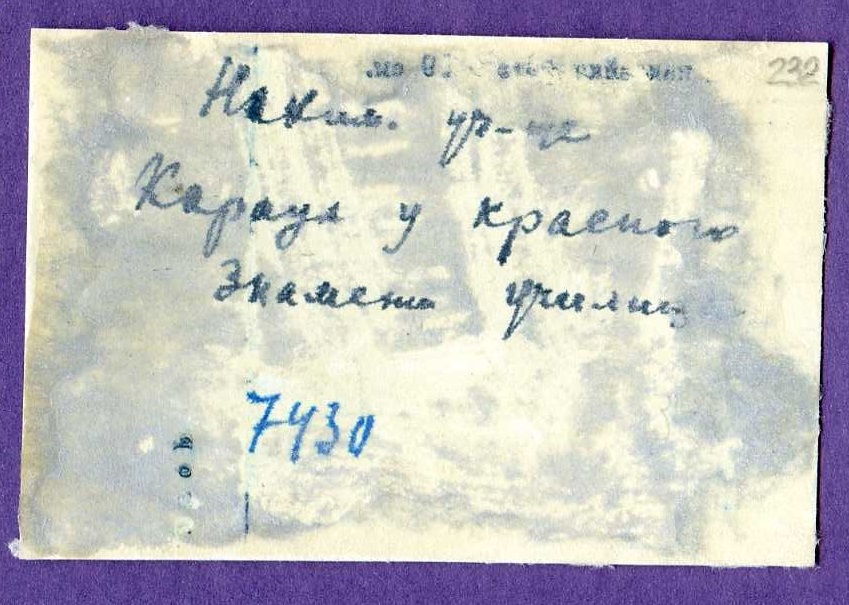 232
Нахим. уч-ще
Караул у красного
Знамени училищ
7430